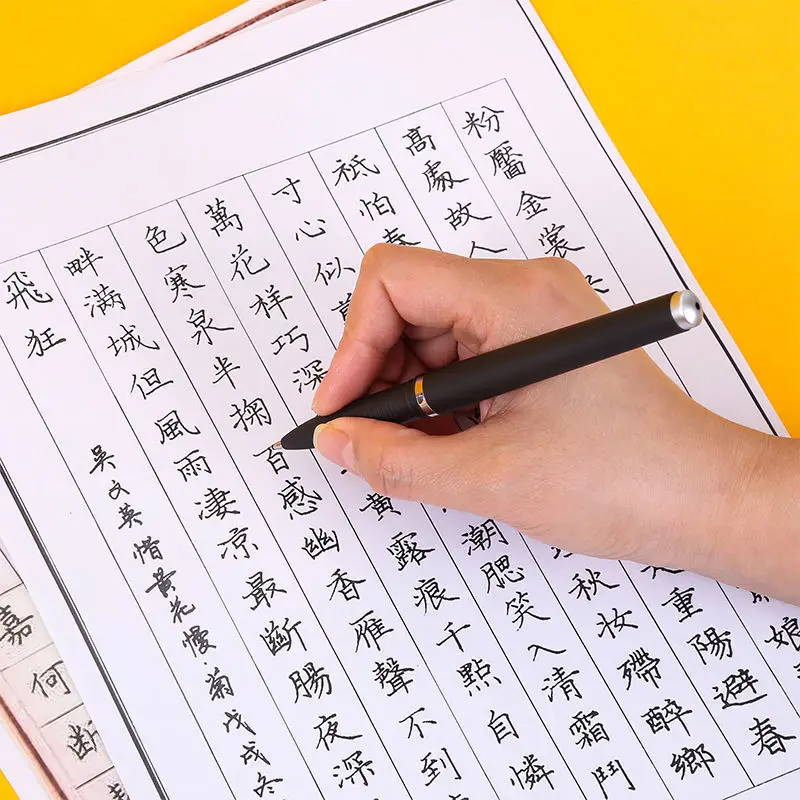 粉靨金裳 娘
高處故人 重陽避春
祇怕春 秋妝殢醉鄉
寸心似剪 潮腮笑入清霜鬥
萬花樣巧深 黃露痕千點自憐
色寒泉半掬百感幽香雁聲不到
畔滿城但風雨淒涼最斷腸夜深
飛狂
吳文英惜黃花慢·菊戊戌冬
嘉何斷